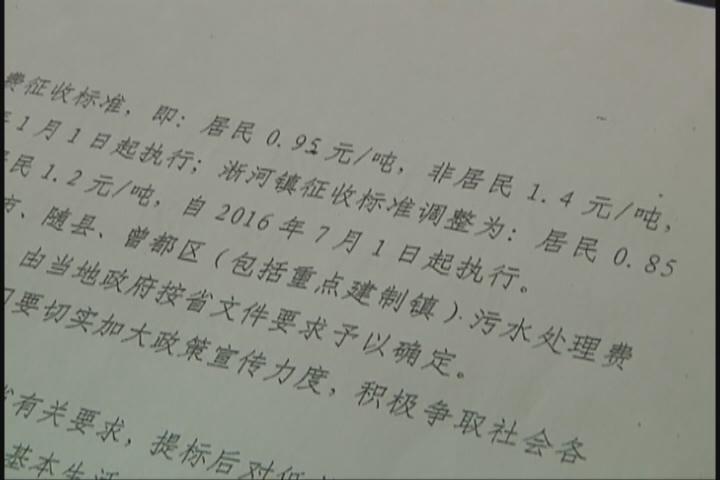 费征收标准，即：居民 0.95 元/吨，非居民 1.4 元/吨，
年 1 月 1 日起执行；淅河镇征收标准调整为：居民 0.85
居民 1.2 元/吨，自 2016 年 7 月 1 日起执行。
、随县、曾都区（包括重点建制镇）污水处理费
由当地政府按省文件要求予以确定。
要切实加大政策宣传力度，积极争取社会各
有关要求，提标后对低
基本生活